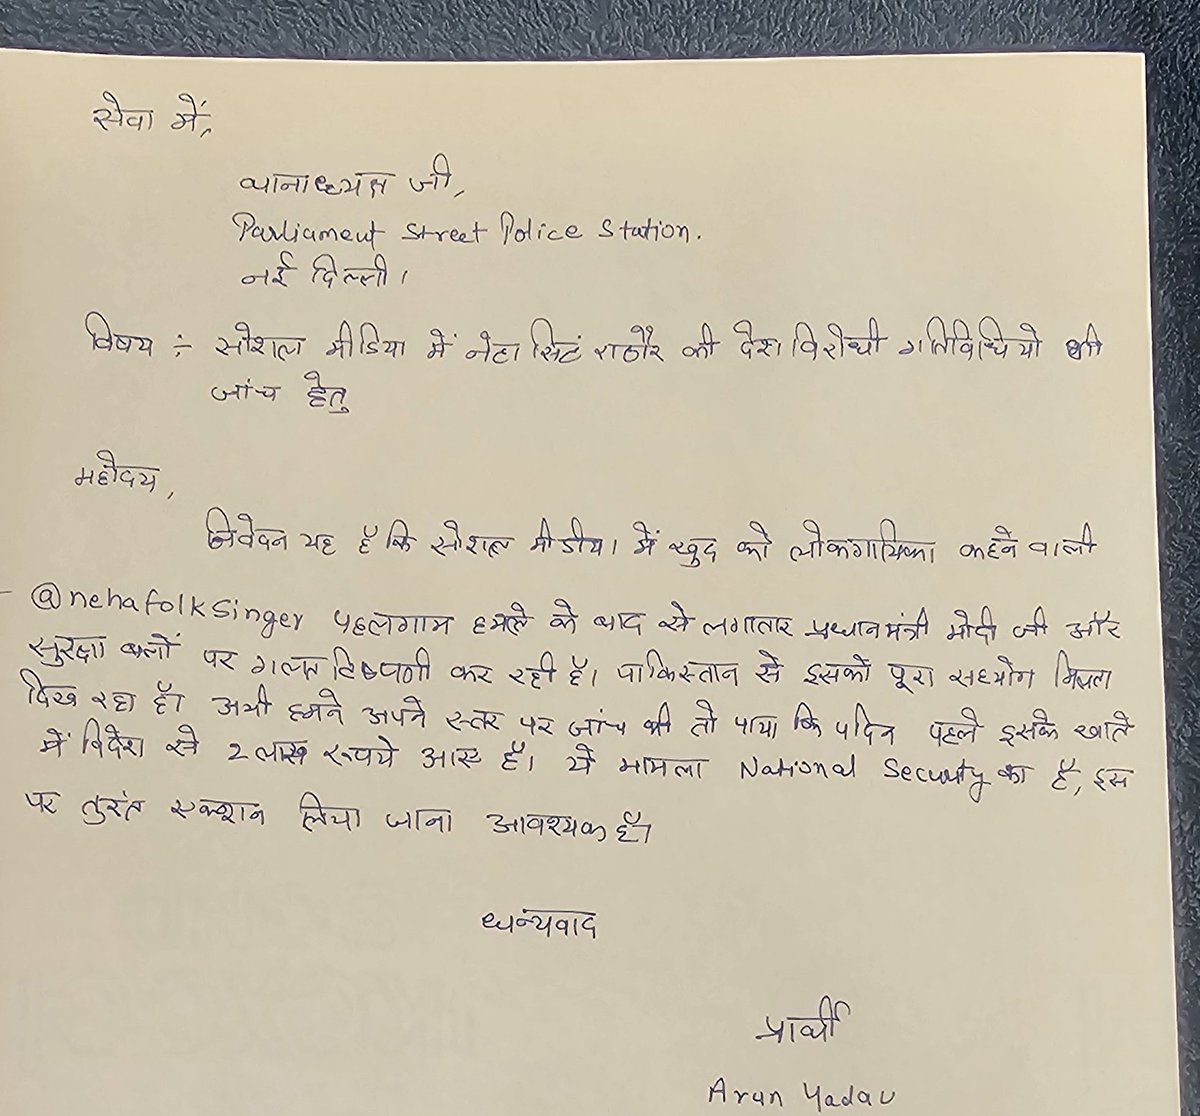 सेवा में,
थानाध्यक्ष जी,
Parliament Street Police Station.
नई दिल्ली।
विषय :- सोशल मीडिया में नेहा सिंह राठौर की देश विरोधी गतिविधियो की
जांच हेतु
महोदय,
निवेदन यह है कि सोशल मीडीया में खुद को लोकगायिका कहने वाली
@nehafolksinger पहलगाम हमले के बाद से लगातार प्रधानमंत्री मोदी जी और
सुरक्षा बलों पर गलत टिप्पणी कर रही है। पाकिस्तान से इसको पूरा सहयोग मिलता
दिख रहा है। अभी हमने अपने स्तर पर जांच की तो पाया कि दिन पहले इसके खाते
में विदेश से 2 लाख रूपये आए है। ये मामला National Security का है, इस
पर तुरंत एक्शन लिया जाना आवश्यक है।
धन्यवाद
प्रार्थी
Arun Yadav